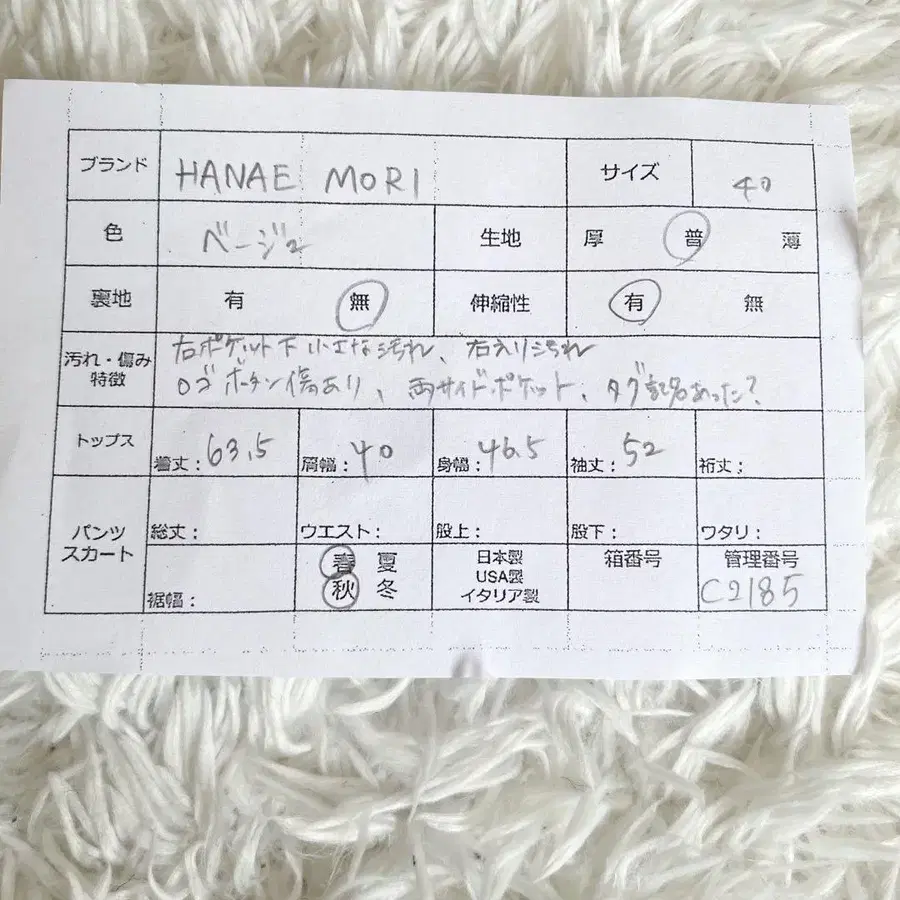 ブランド HANAE MORI サイズ 40
色 ベージュ 生地 厚 普 薄
裏地 有 無 伸縮性 有 無
汚れ・傷み
特徴
右ポケット下 小さな汚れ、右えり汚れ
ロゴボタン傷あり、両サイドポケット、タグ記名あった?
トップス 着丈:63.5 肩幅:40 身幅:46.5 袖丈:52 裄丈:
パンツ
スカート
総丈: ウエスト: 股上: 股下: ワタリ:
裾幅:
春 夏
秋 冬
日本製
USA製
イタリア製
箱番号
管理番号
C2185